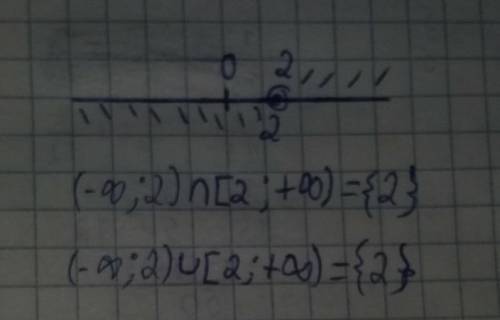 0 2
2
(-∞;2)∩[2;+∞)={2}
(-∞;2)∪[2;+∞)={2}